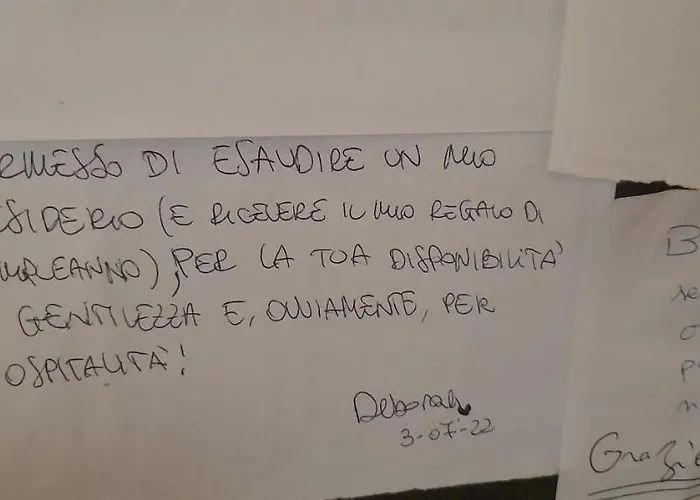 RMESSO DI ESAUDIRE UN MIO
SIDERIO (E RICEVERE IL MIO REGALO DI
MPLEANNO), PER LA TUA DISPONIBILITA'
GENTILEZZA E, OVVIAMENTE, PER
OSPITALITÀ!
Deborah
3-07-22
B
se
o
p
n
Grazie